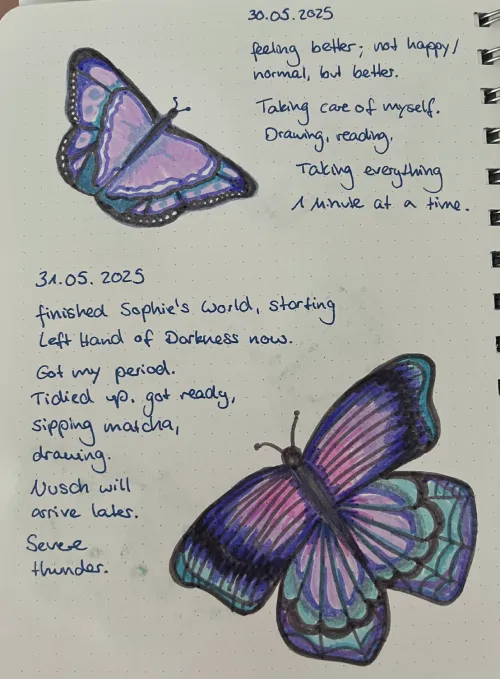 30.05.2025
feeling better; not happy/
normal, but better.
Taking care of myself.
Drawing, reading.
Taking everything
1 Minute at a time.
31.05.2025
finished Sophie's World, starting
Left Hand of Darkness now.
Got my period.
Tidied up. got ready,
sipping matcha,
drawing.
Nusch will
arrive later.
Severe
thunder.